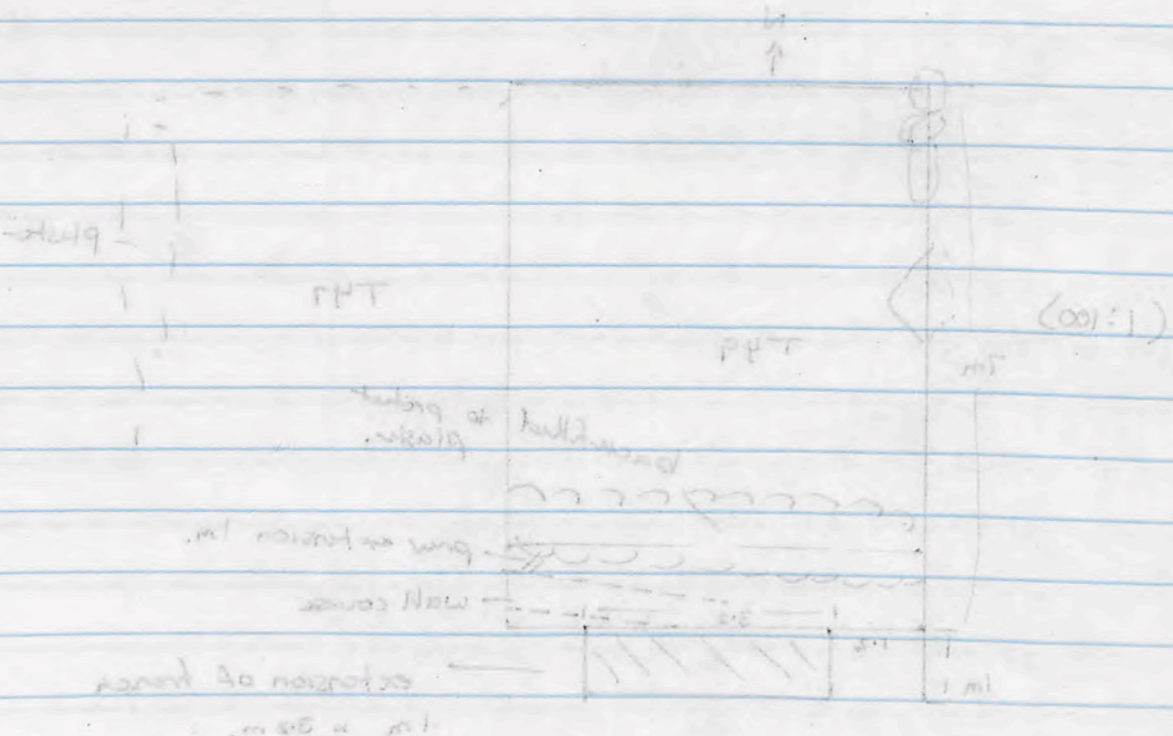 N
(1:100)
plaster
T47
T49
7m
backfilled to protect
plaster.
prev extension 1m.
wall course
3.2
1.2
1m
extension of trench
1m x 3.2m.